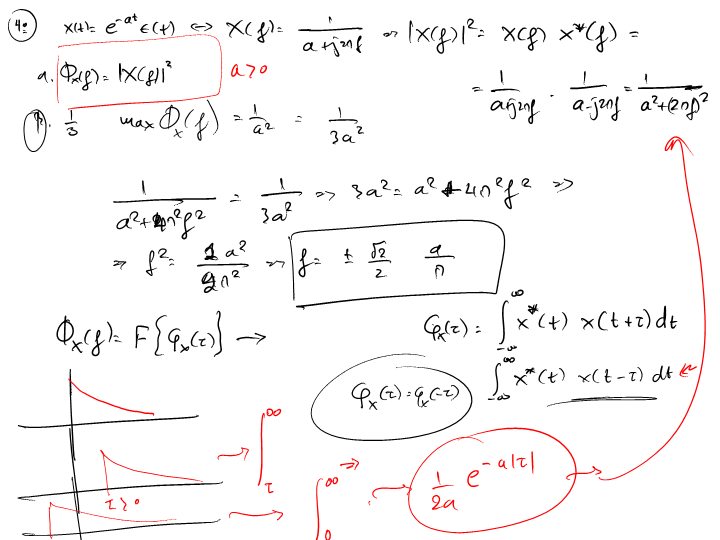 4. x(t)= e^{-at} ϵ(t) ⇔ X(f)= 1/(a+j2πf) ⇒ |X(f)|² = X(f) X*(f) =
a. Φx(f)= |X(f)|² a>0 = 1/(a+j2πf) · 1/(a-j2πf) = 1/(a²+(2πf)²)
1/3 max Φx(f) = 1/a² = 1/3a²
1/(a²+4π²f²) = 1/3a² ⇒ 3a² = a²+4π²f² ⇒
⇒ f² = 1a²/2π² ⇒ f= ± √2/2 a/π
Φx(f)= F{φx(τ)} → φx(τ)= ∫_{-∞}^{∞} x*(t) x(t+τ) dt
φx(τ)=φx(-τ) ∫_{-∞}^{∞} x*(t) x(t-τ) dt ←
τ>0 → ∫_τ^∞
→ ∫_0^∞ ⇒ → 1/2a e^{-a|τ|} →